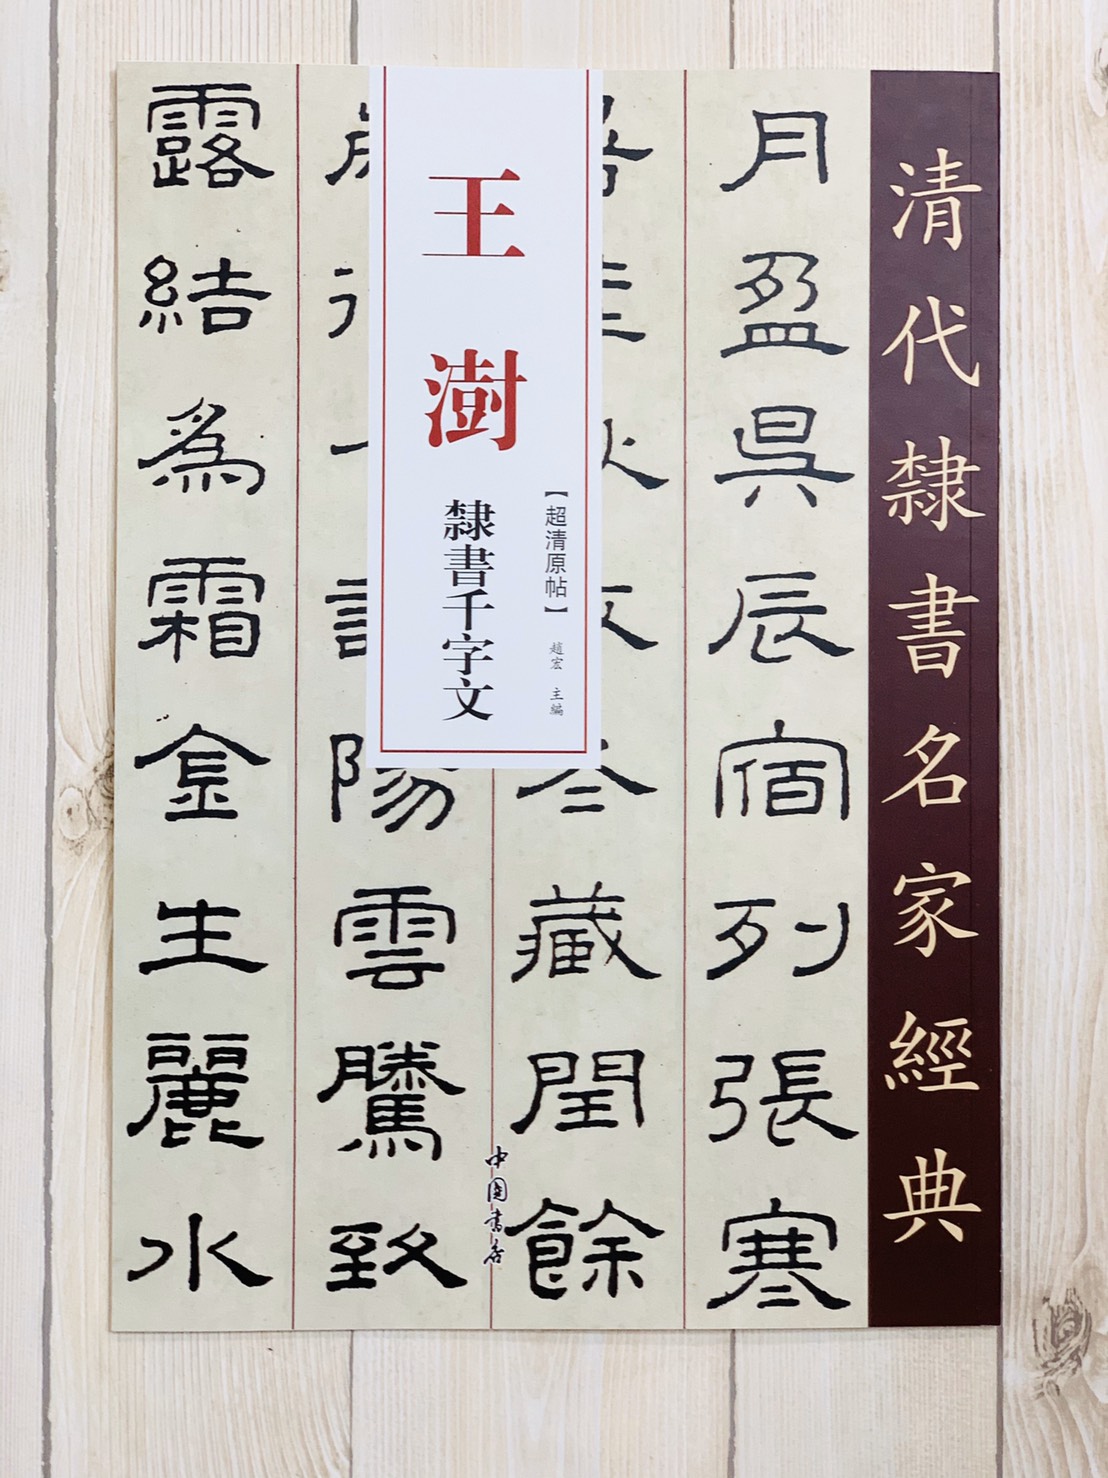 清代隸書名家經典
月盈昃辰宿列張寒
冬藏閏餘
陽雲騰致
露結爲霜金生麗水
【超清原帖】
趙宏 主編
王澍
隸書千字文
中國書店